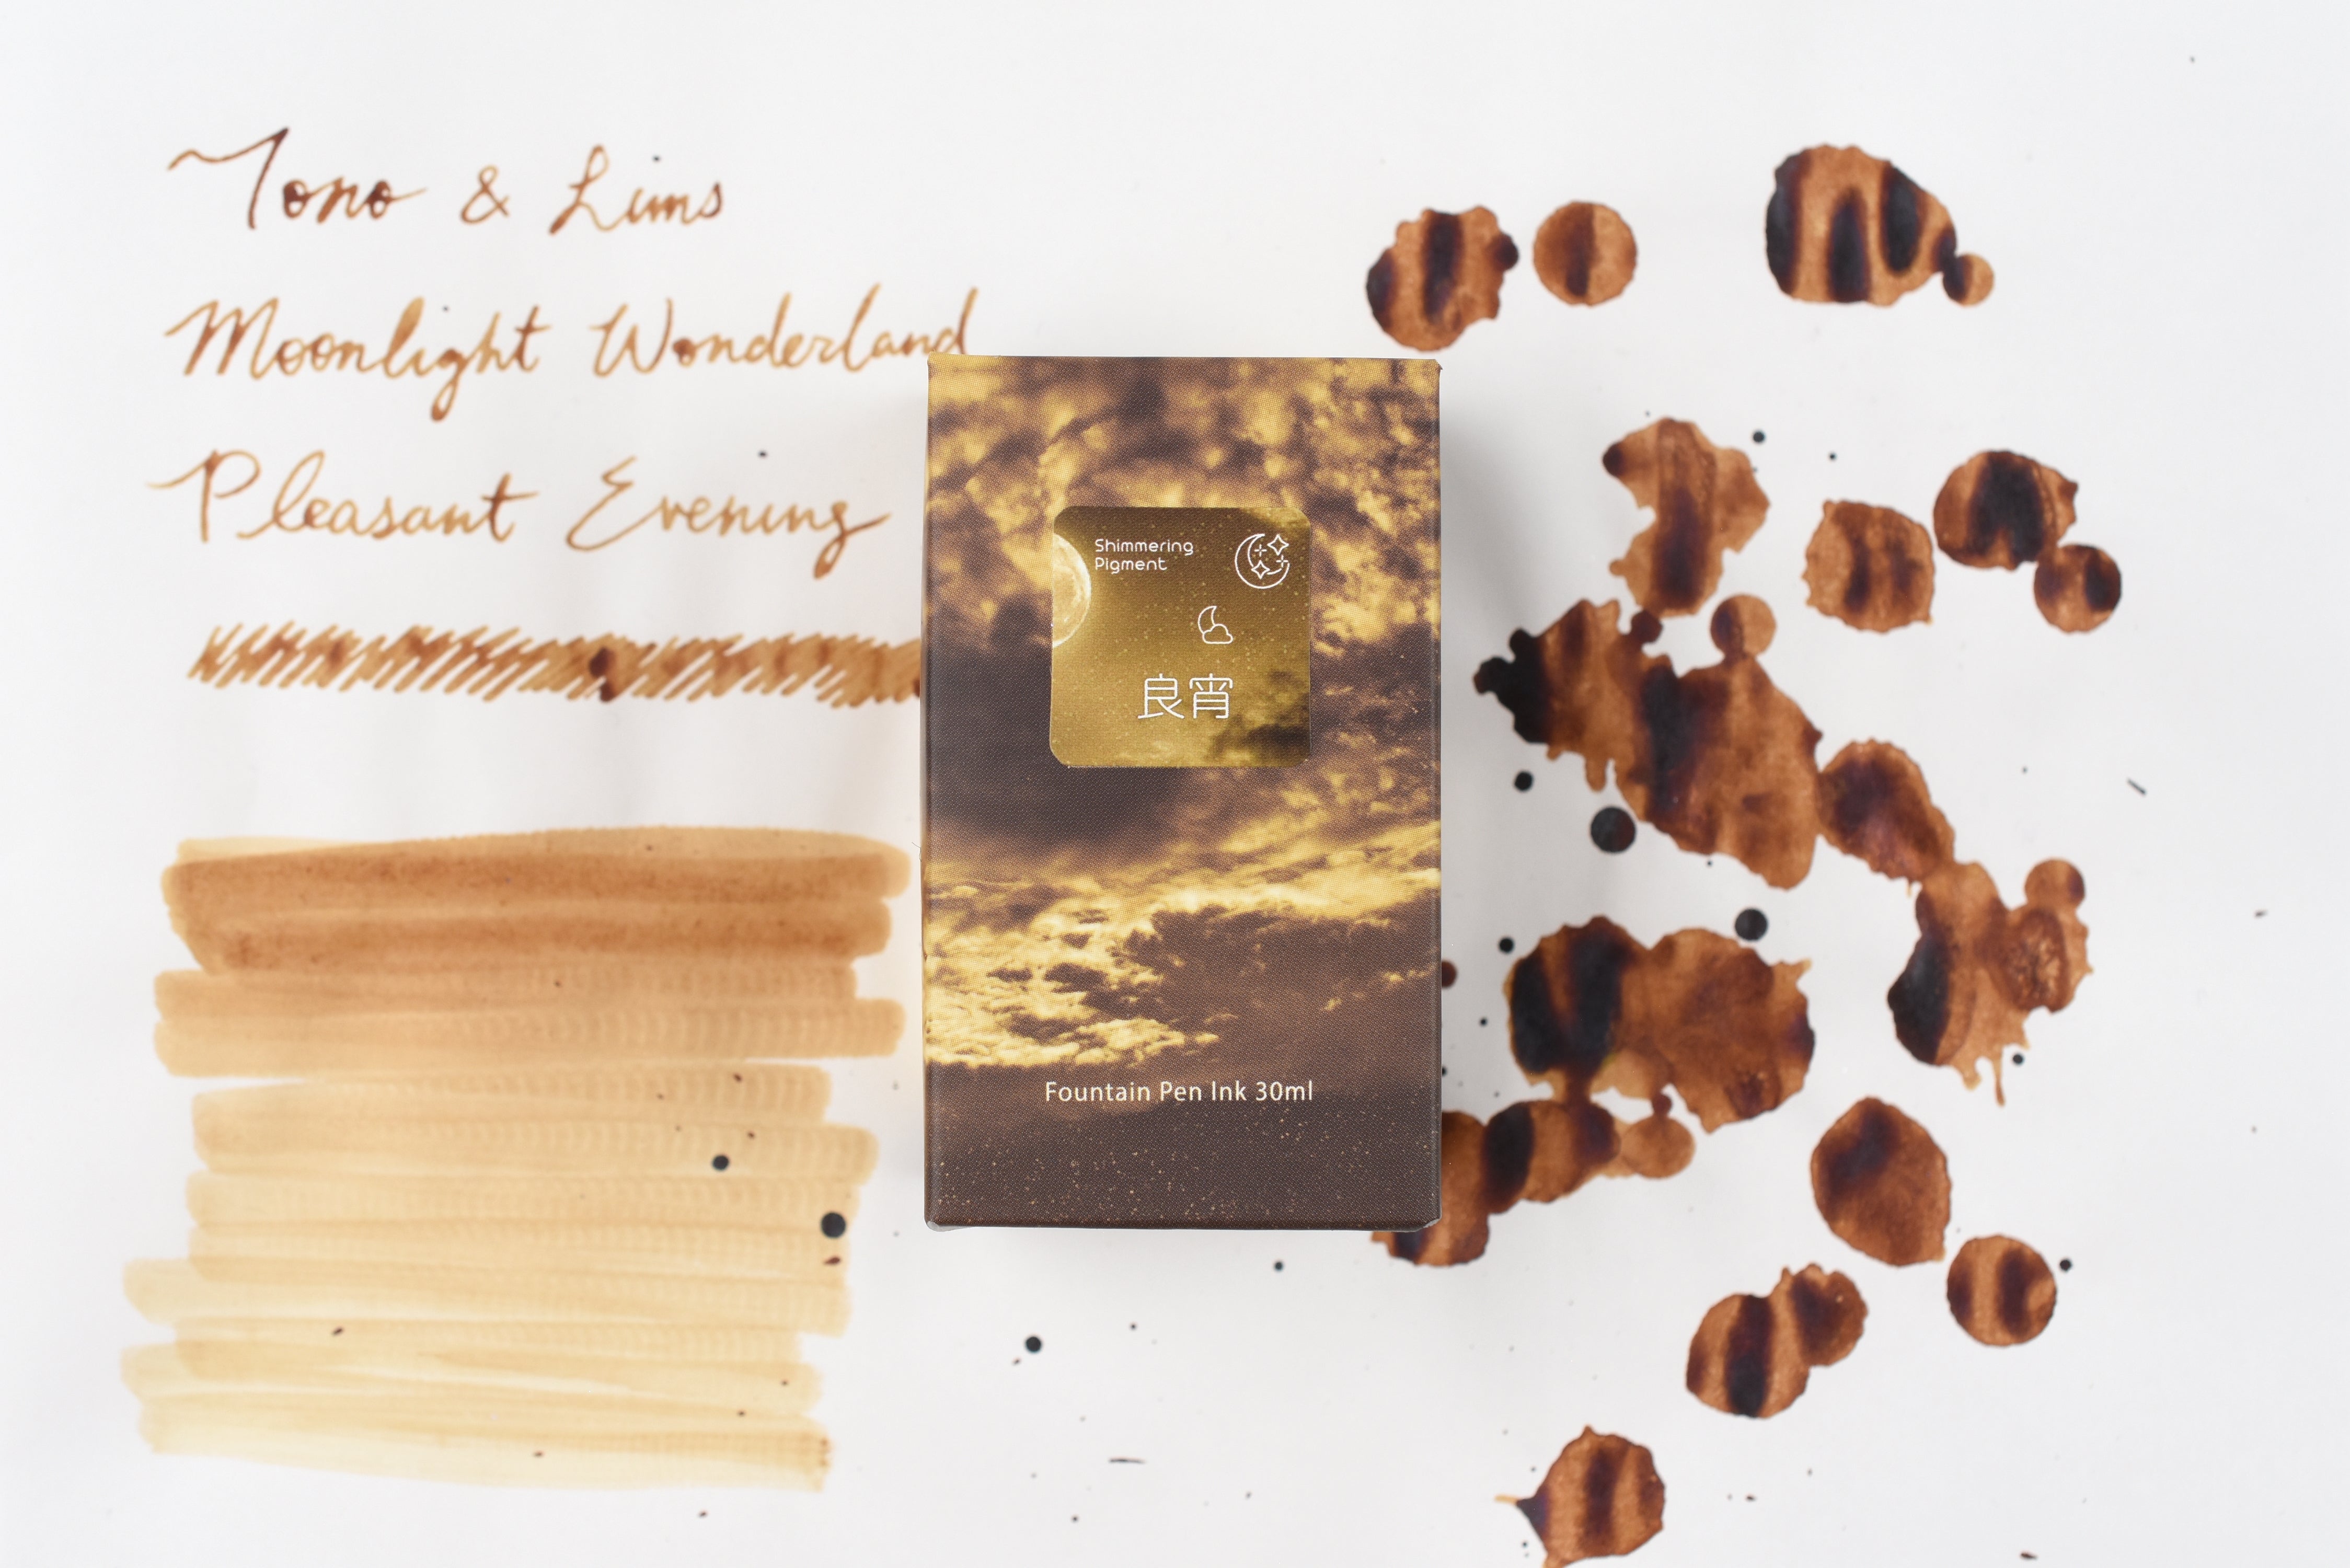 Tono & Lims
Moonlight Wonderland
Pleasant Evening
Shimmering
Pigment
良宵
Fountain Pen Ink 30ml